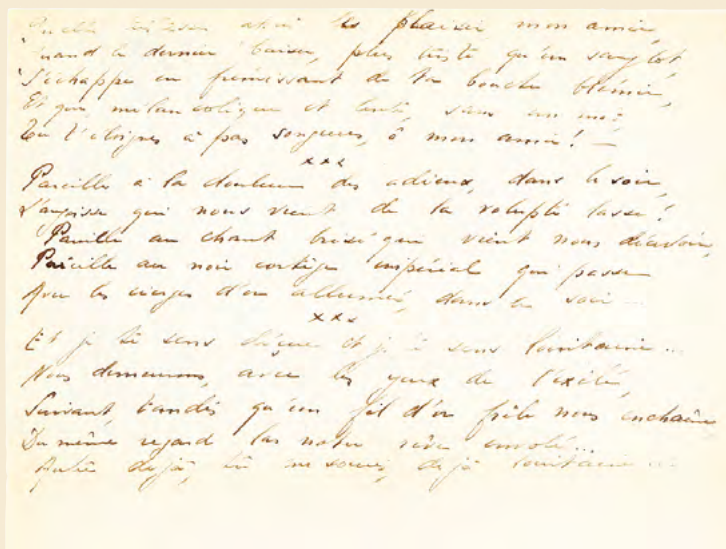 Quelle tristesse après les plaisir mon amie,
Quand le dernier baiser, plus triste qu'un sanglot,
S'échappe en frémissant de ta bouche blêmie,
Et que, mélancolique et lente, sans un mot,
Tu t'éloignes à pas songeurs, ô mon amie! —
xxx
Pareille à la douleur des adieux, dans le soir,
L'angoisse qui nous vient de la volupté lasse!
Pareille au chant brisé qui vient nous décevoir,
Pareille au noir cortège impérial qui passe
Avec les cierges d'or allumés, dans le soir...
xxx
Et je te sens déçue et je te sens lointaine...
Nous demeurons, avec les yeux de l'exilé,
Suivant, tandis qu'un fil d'or frêle nous enchaîne
Du même regard las notre rêve envolé...
Autre déjà, tu me souris, déjà lointaine...